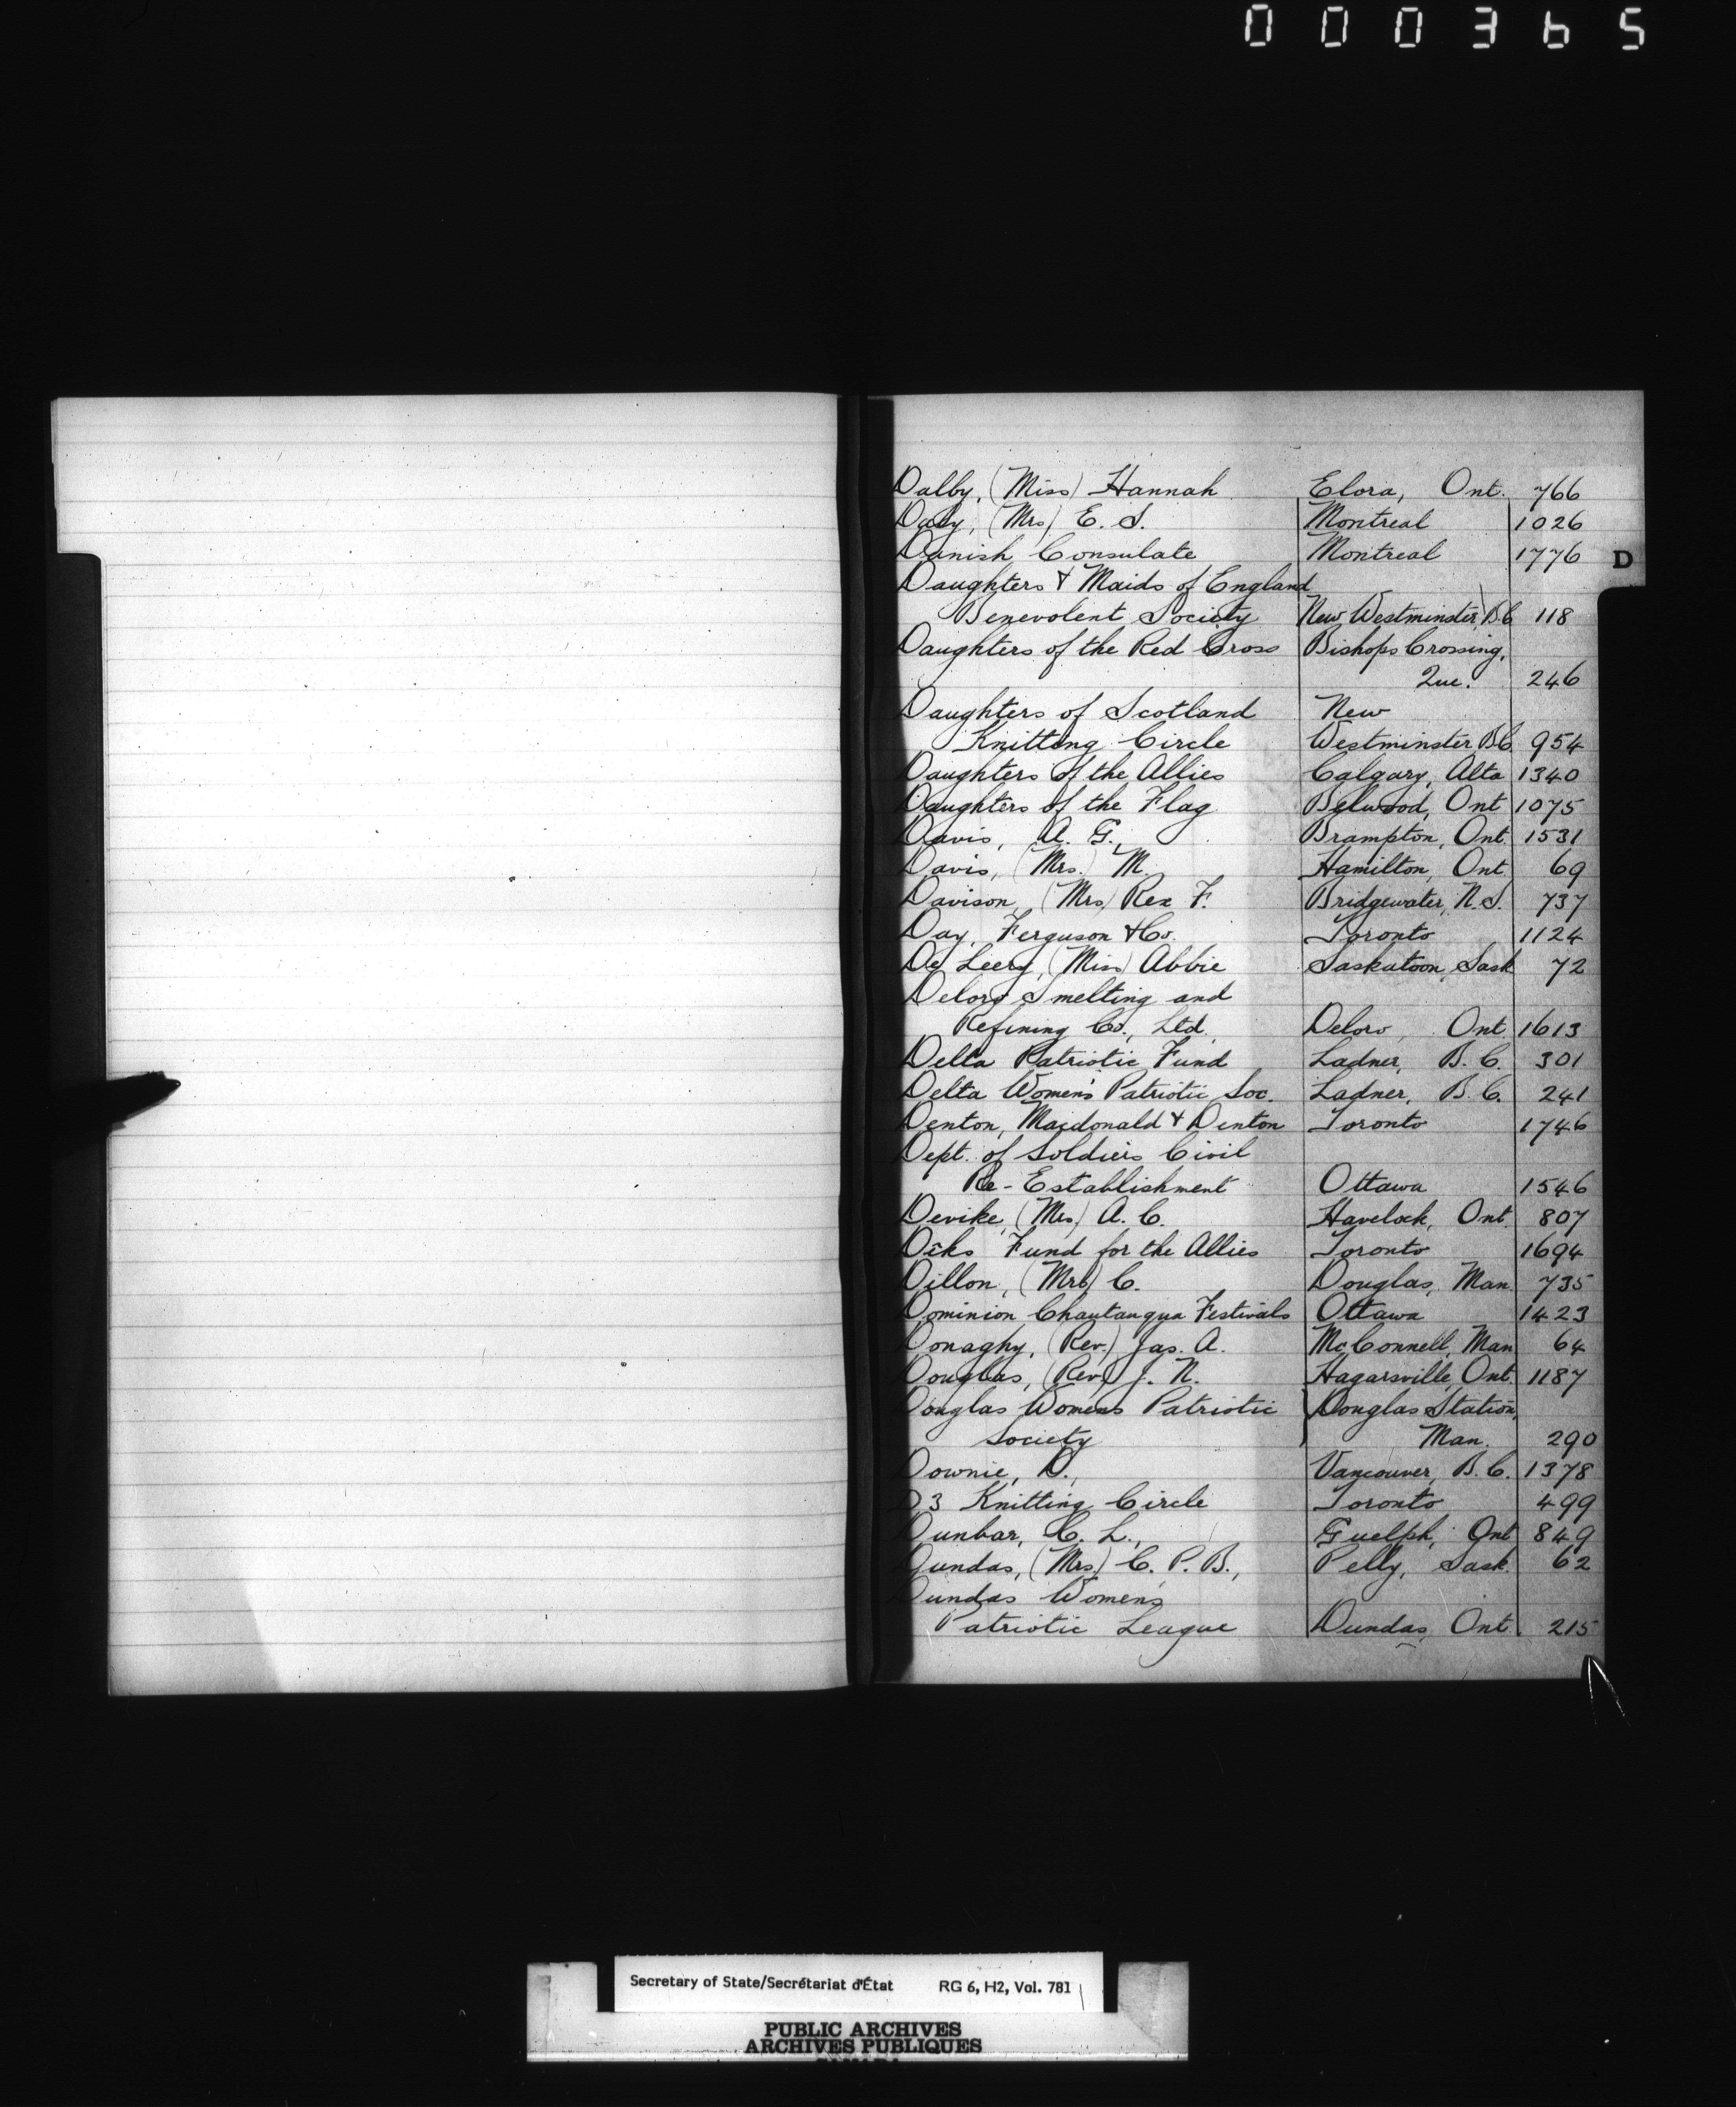 000365
Dalby, (Miss) Hannah Elora, Ont. 766
Daly, (Mrs) E. S. Montreal 1026
Danish Consulate Montreal 1776
D
Daughters & Maids of England
Benevolent Society New Westminster, B.C 118
Daughters of the Red Cross Bishops Crossing,
Que. 246
Daughters of Scotland New
Knitting Circle Westminster B.C 954
Daughters of the Allies Calgary, Alta 1340
Daughters of the Flag Belwood, Ont 1075
Davis, A. G., Brampton, Ont. 1531
Davis, (Mrs.) M. Hamilton, Ont 69
Davison, (Mrs) Rex F. Bridgewater, N.S. 737
Day, Ferguson & Co. Toronto 1124
De Leery, (Miss) Abbie Saskatoon, Sask 72
Deloro Smelting and
Refining Co., Ltd. Deloro, Ont 1613
Delta Patriotic Fund Ladner, B.C. 301
Delta Women's Patriotic Soc. Ladner, B.C. 241
Denton, Macdonald & Denton Toronto 1746
Dept. of Soldiers Civil
Re-Establishment Ottawa 1546
Devike, (Mrs) A. C. Havelock, Ont. 807
Fund for the Allies Toronto 1694
Dillon, (Mrs) C. Douglas, Man 735
Dominion Chautauqua Festivals Ottawa 1423
Donaghy, (Rev.) Jas. A. McConnell, Man 64
Douglas, (Rev) J. N. Hagarsville, Ont. 1187
Douglas Womens Patriotic Douglas Station,
Society Man. 290
Downie, D., Vancouver, B.C. 1378
D3 Knitting Circle Toronto 499
Dunbar, C. L., Guelph, Ont 849
Dundas, (Mrs.) C. P. B., Pelly, Sask. 62
Dundas Women's
Patriotic League Dundas, Ont 215
Secretary of State/Secrétariat d'État RG 6, H2, Vol. 781
PUBLIC ARCHIVES
ARCHIVES PUBLIQUES